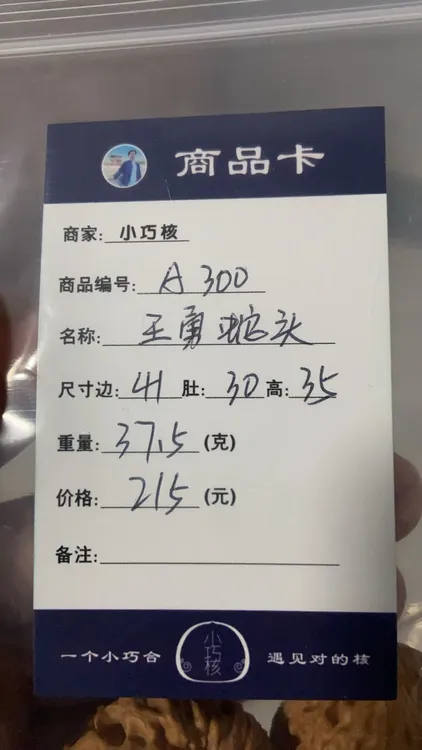 商品卡
商家: 小巧核
商品编号: A300
名称: 王勇蛇头
尺寸边: 41 肚: 30 高: 35
重量: 37.5 (克)
价格: 215 (元)
备注:
一个小巧合 小巧核 遇见对的核